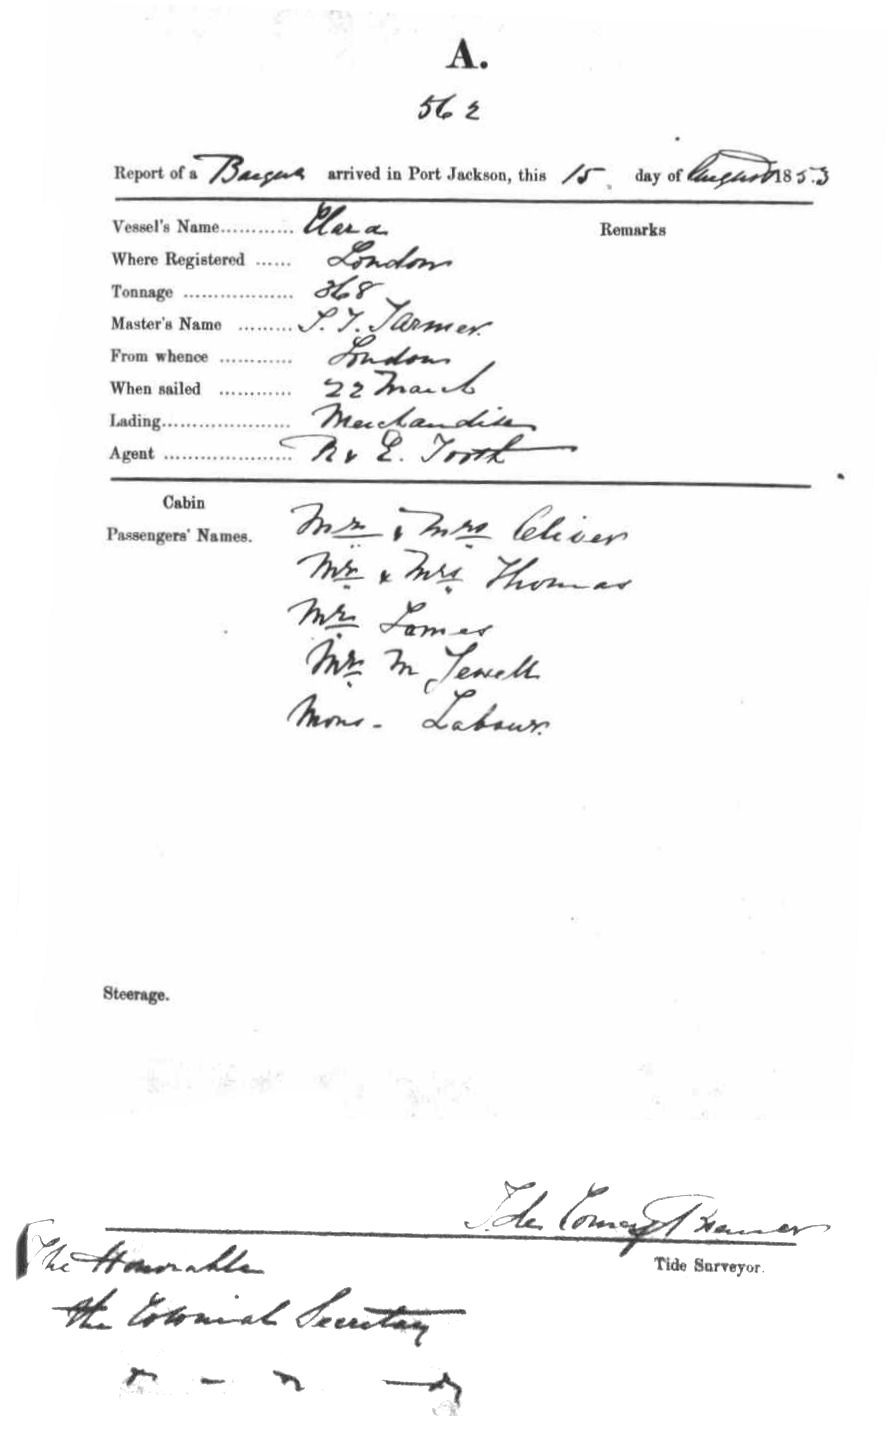 A.
562
Report of a Barque arrived in Port Jackson, this 15 day of August 1853
Vessel's Name............ Clara Remarks
Where Registered ...... London
Tonnage .................. 368
Master's Name ......... S. T. Farmer
From whence ............ London
When sailed ............ 22 March
Lading..................... Merchandise
Agent ..................... R & E. Tooth
Cabin
Passengers' Names.
Mr & Mrs Oliver
Mr & Mrs Thomas
Mr Lomes
Mr M Jewell
Mons - Labour
Steerage.
Tide Surveyor.
The Honorable
the Colonial Secretary